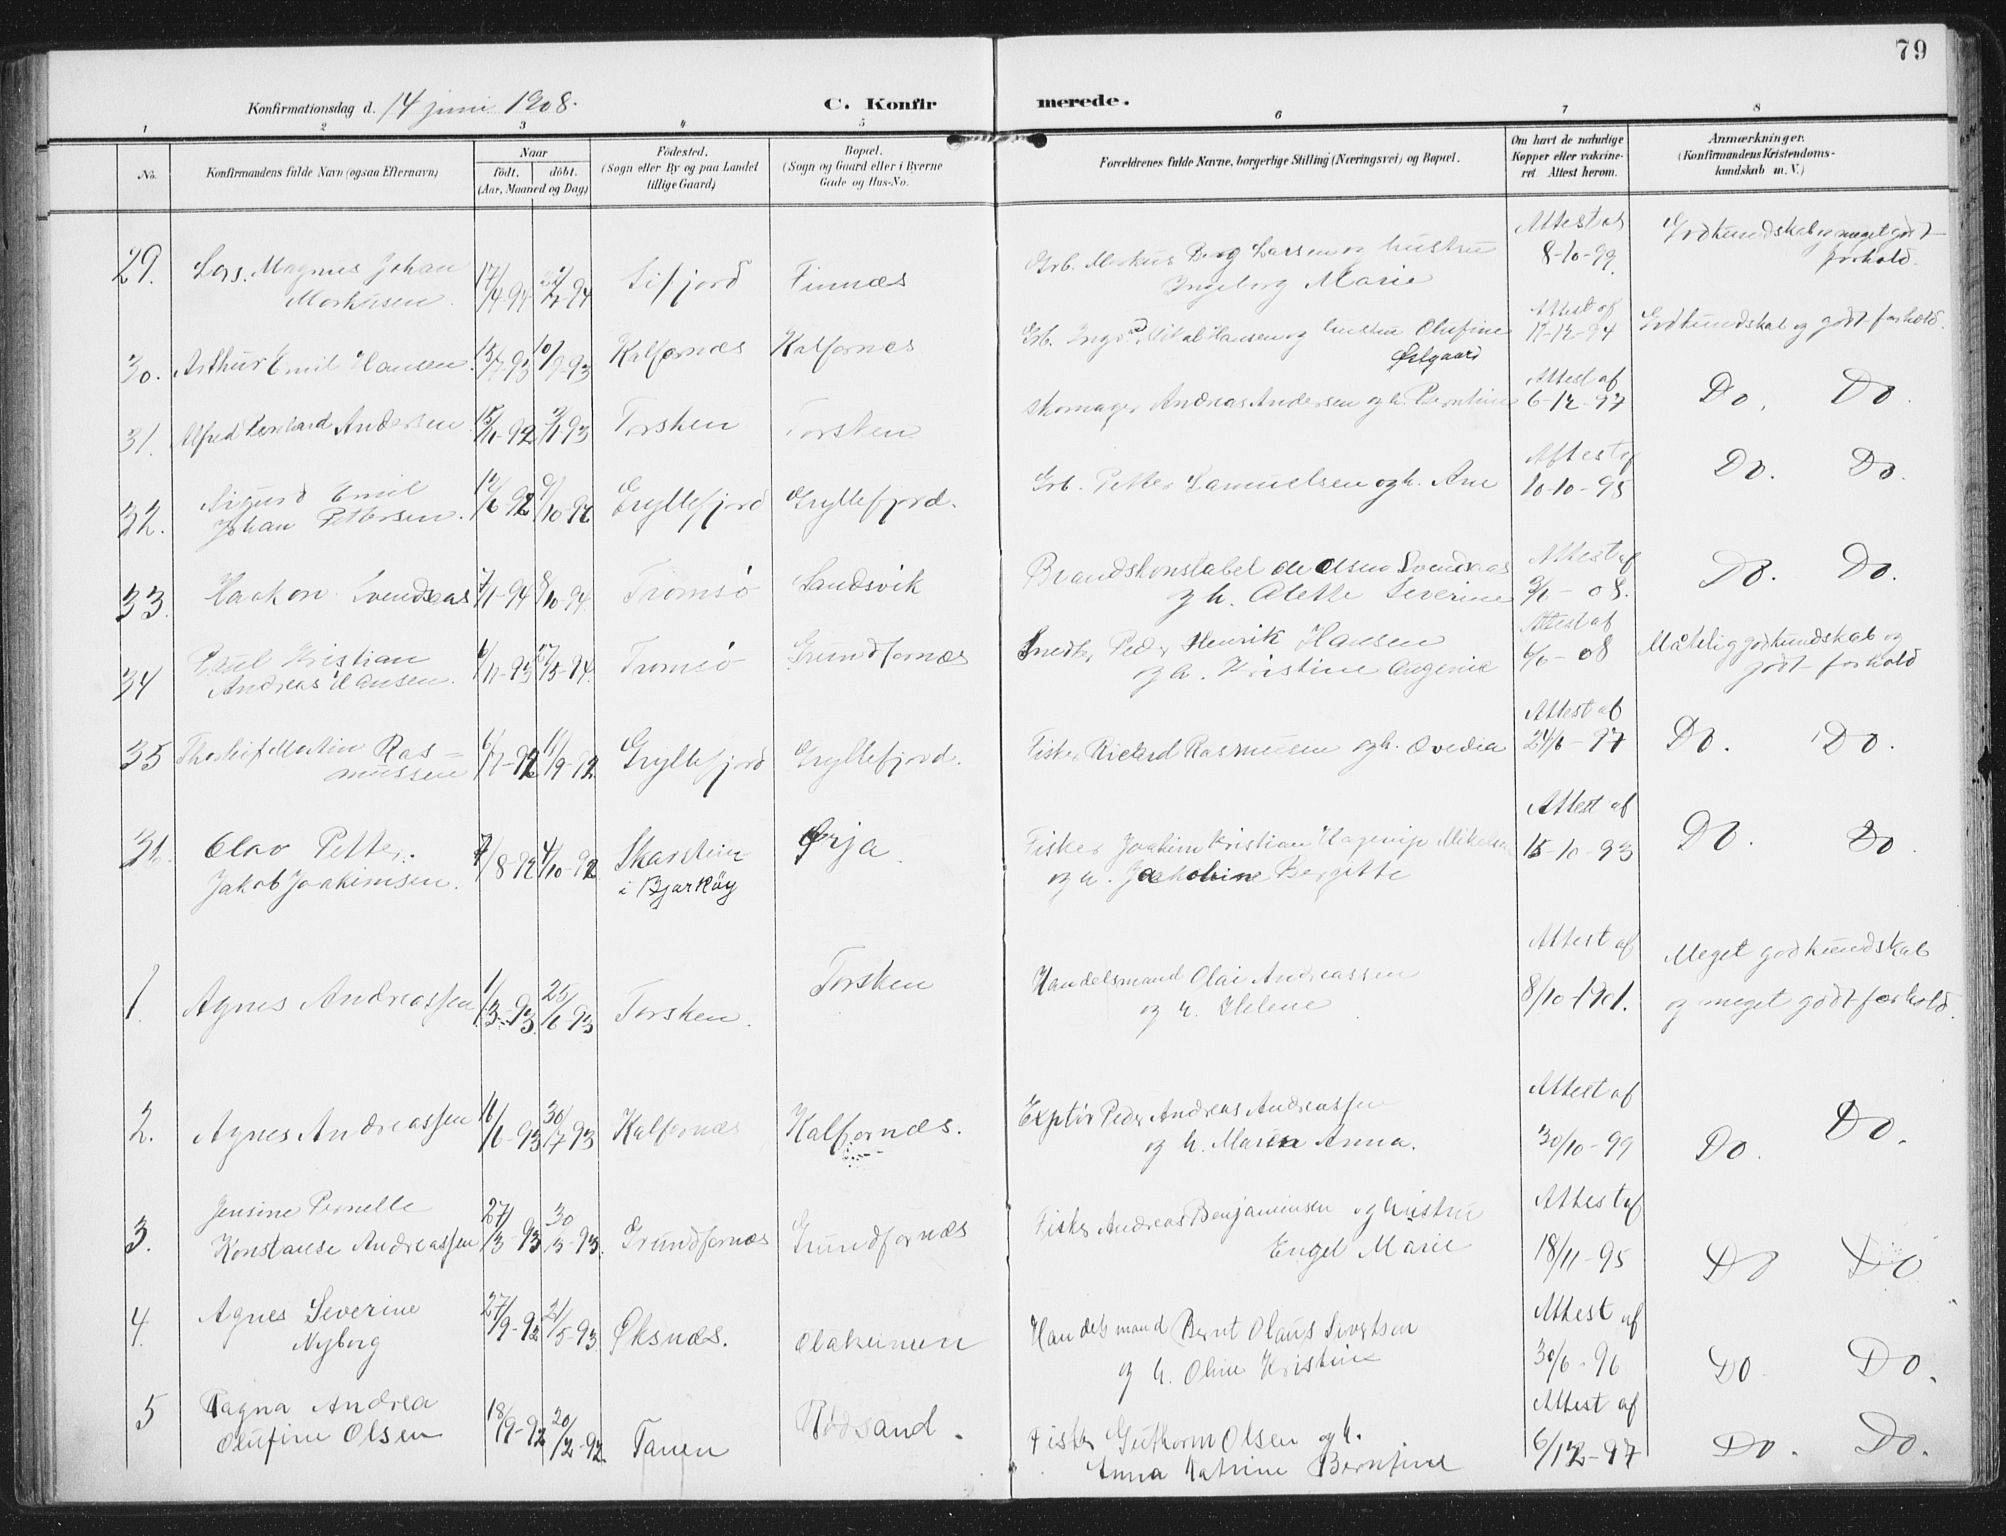 79
Konfirmationsdag d. 14 juni 1908.
C. Konfirmerede.
1 2 3 4 5 6 7 8
No.
Konfirmandens fulde Navn (ogsaa Efternavn)
Naar
født. døbt.
(Aar, Maaned og Dag)
Fødested.
(Sogn eller By og paa Landet
tillige Gaard)
Bopæl.
(Sogn og Gaard eller i Byerne
Gade og Hus-No.
Forældrenes fulde Navne, borgerlige Stilling (Næringsvei) og Bopæl.
Om havt de naturlige
Kopper eller vakcine-
ret. Attest herom.
Anmærkninger.
(Konfirmandens Kristendoms-
kundskab m. V.)
29. Lars Magnus Johan
Markusen. Sifjord Finnæs
Grb. Markus Berg Larsen og hustru
Ingeborg Marie
Attest af
8-10-99.
God kundskab og meget godt
forhold.
30. Arthur Emil Hansen. Kalfornæs Kalfornæs
Hansen og hustru Olufine
Ørlgaard
Attest af
17-12-94
God kundskab og godt forhold.
31. Alfred Lenhard Andersen 15/11-92 Torsken Torsken
Skomager Andreas Andersen og h. Berntine
Attest af
6-12-97
Do. Do.
32. Sigurd Emil
Johan Pettersen. Gryllefjord Gryllefjord.
Grb. Petter Samuelsen og h. Ane
Attest af
10-10-95
Do. Do.
33. Haakon Svendsaas Tromsø Sandsvik
Brandkonstabel Svendsaas
og h. Alette Severine
Attest af
08.
Do. Do.
34 Paul Kristian
Andreas Hansen. Tromsø Grundfornæs
Snedk. Peder Henrik Hansen
og h. Kristine Eugenie
Attest af
6/6-08
Måtelig god kundskab og
godt forhold
35 Martin Ras-
mussen 11/9-92 Gryllefjord Gryllefjord.
Fisker Rickard Rasmussen og h. Ovedia
Attest af
24/6-97
Do. Do.
36. Olav Petter
Jakob Joakimsen. 7/8-92 4/10-92 Skarstein
i Bjarköy
Ørja.
Fisker Joakim Kristian
og h. Jakobine Bergitte
Attest af
15-10-93
Do. Do.
1. Agnes Andreassen 1/3-93. 25/6-93 Torsken. Torsken
Handelsmand Olai Andreassen
og h. Helene
Attest af
8/10-1901.
Meget god kundskab
og meget godt forhold.
2. Agnes Andreassen 16/6-93 30/7-93 Kalfornæs Kalfornæs.
Exptör Peder Andreas Andreassen
og h. Maren Anna.
Attest af
30/10-99
Do. Do.
3. Jensine Pernelle
Konstanse Andreassen 27/3-93 Grundfornæs Grundfornæs
Fisker Andreas Benjaminsen og hustru
Engel Marie
Attest af
18/11-95
Do Do
4. Agnes Severine
Nyborg 27/9-92 21/5-93 Øksnæs.
Handelsmand Bernt Olaus Sivertsen
og h. Oline Kristine
Attest af
30/6-96
Do Do.
5 Ragna Andrea
Olufine Olsen 18/9-92 Tanen Rødsand.
Fisker Guthorm Olsen og h.
Anna Katrine Berntine
Attest af
6/12-97
Do. Do.